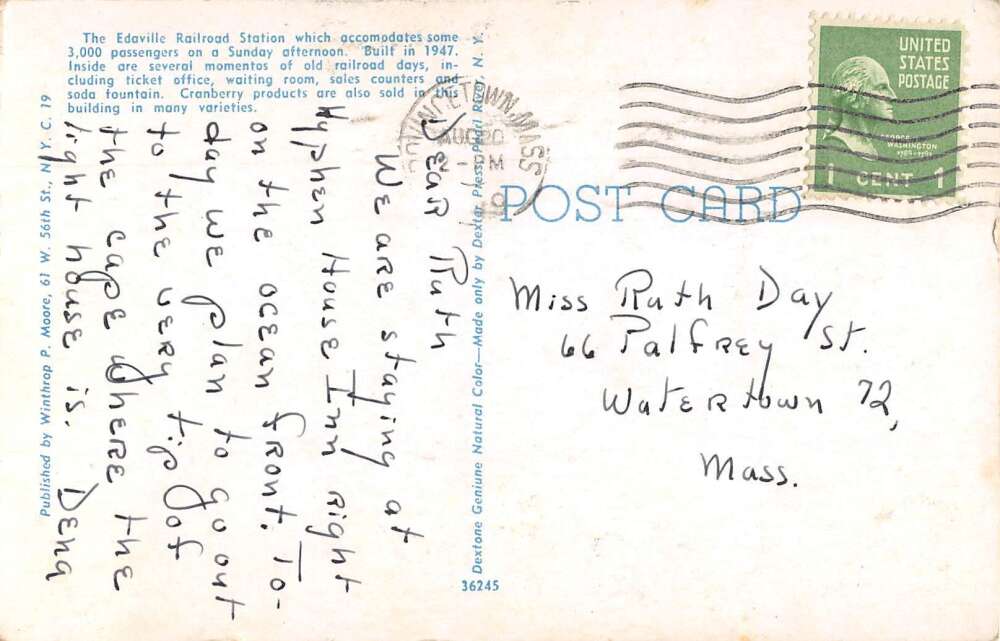 The Edaville Railroad Station which accomodates some
3,000 passengers on a Sunday afternoon. Built in 1947.
Inside are several momentos of old railroad days, in-
cluding ticket office, waiting room, sales counters and
soda fountain. Cranberry products are also sold in this
building in many varieties.
Published by Winthrop P. Moore, 61 W. 56th St., N. Y. C. 19
Dear Ruth
We are staying at
Hyphen House Inn right
on the ocean front. To-
day we plan to go out
to the very tip of
the cape where the
light house is. Dena
Dextone Geniune Natural Color—Made only by Dexter Press, Pearl River, N. Y.
36245
PROVINCETOWN, MASS
AUG 20
M
UNITED
STATES
POSTAGE
GEORGE
WASHINGTON
1 CENT 1
POST CARD
Miss Ruth Day
66 Palfrey St.
Watertown 72,
Mass.